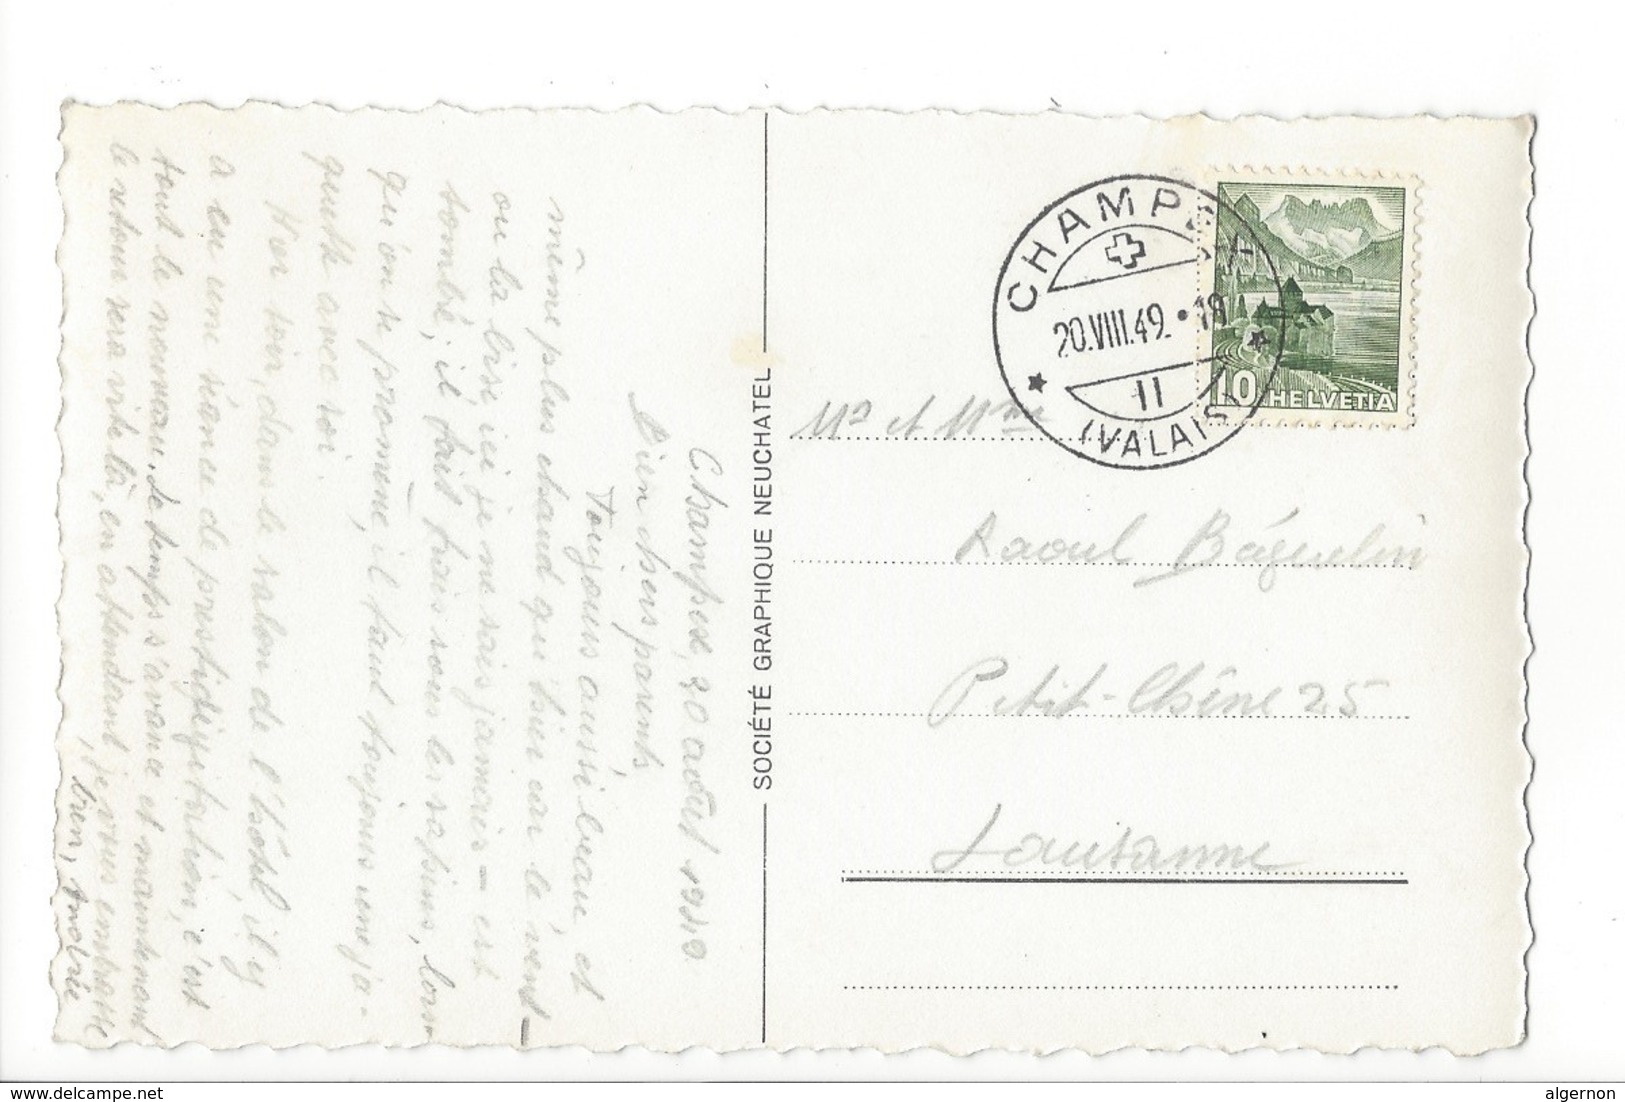 Champex, 20 août 1949
Bien chers parents,
Toujours aussi beau, et
même plus chaud qu'hier car le vent –
ou la bise ici je ne sais jamais – est
tombé, il fait frais sous les sapins, lors-
qu'on se promène, il faut toujours une ja-
quette avec soi.
Hier soir, dans le salon de l'hôtel, il y
a eu une séance de prestidigitation, c'est
tout le nouveau. Le temps s'avance et maintenant
le retour sera vite là, en attendant je vous embrasse
bien, Andrée
SOCIÉTÉ GRAPHIQUE NEUCHATEL
CHAMPEX
20.VIII.49. • 18
II
(VALAIS)
10 HELVETIA
Mr et Mme
Raoul Béguelin
Petit-Chêne 25
Lausanne
www.delcampe.net
algernon